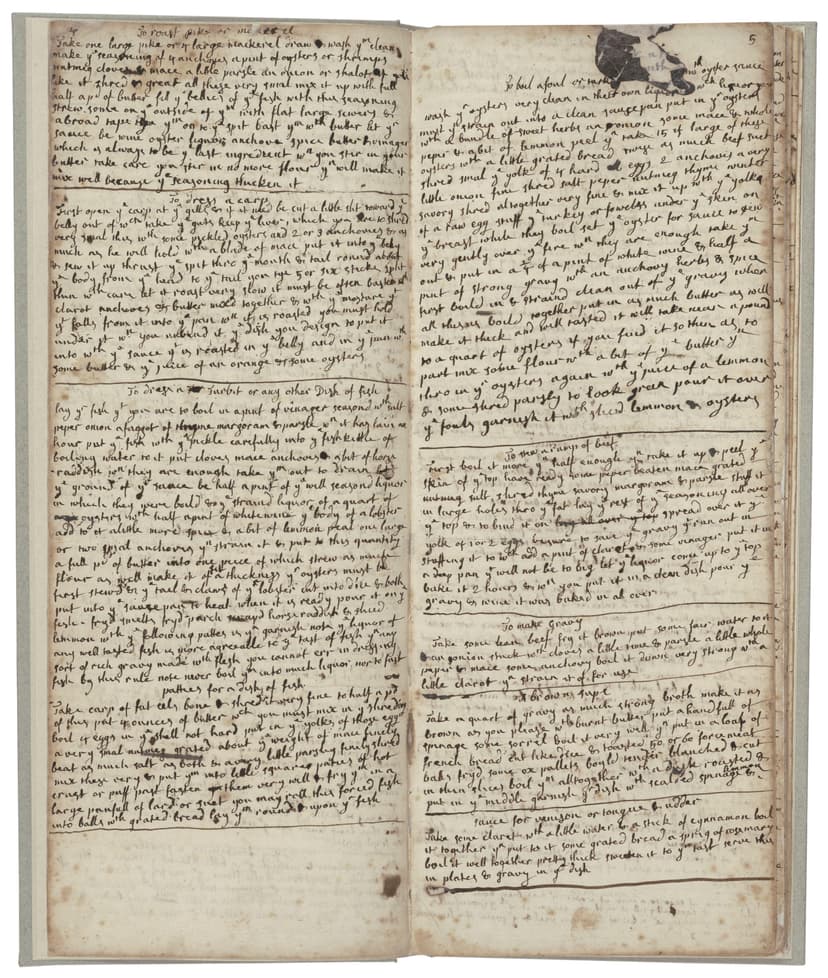 4
To roast pike or mackerel
Take one large pike or 4 large mackerel draw & wash ym clean
make yr seasoning of 4 anchoves a pint of oysters or shrimps
nutmeg cloves & mace a litle parsle an onion or shalot if you
like it shred & great all these very smal mix it up with full
half a pd of butter fil ye bellies of ye fish with this seasoning
strew some on ye outside of ym with flat large scwers &
abroad tape tye ym on to ye spit bast ym wth butter let yr
sauce be wine oyster liquor anchove spice butter & vinager
which is always to be ye last ingredient wn you ster in your
butter take care you ster in no more flour ye will make it
mix well because ye seasoning thicken it
To dress a carp
First open ye carp at ye gills & if it need be cut a litle slit toward ye
belly out of wch take ye guts keep ye liver, which you are to shred
very smal this with some pickled oysters and 2 or 3 anchoves & as
much as he will hold wth a blade of mace put it into ye belly
& sew it up thrust ye spit thro ye mouth & tail round about
ye body from ye head to ye tail you tye 5 or six sticks split
thin wth care let it roast very slow it must be often basted wth
clarot anchoves & butter mixed together & wth ye moisture yt
yt falls from it into ye pan wn it is roasted you must hold
under it wn you unbind it ye dish you design to put it
into wth ye sauce yt is roasted in ye belly and in ye pan wth
some butter & ye juice of an orange & some oysters
To dress a Turbit or any other Dish of fish
lay yr fish yt you are to boil in a pint of vinager seasond wth salt
peper onion a fagot of thyme margoram & parsle wn it has lain an
hour put ye fish wth ye pickle carefully into ye fish kettle of
boiling water to it put cloves mace anchoves & a bit of hors
raddish wn they are enough take ym out to drain let
ye ground of ye sauce be half a pint of ye well seasond liquor
in which they were boild & ye straind liquor, of a quart of
oysters wth half a pint of whitewine ye body of a lobster
add to it a litle more spice & a bit of lemmon peal one large
or two smal anchoves yn strain it & put to this quantity
a full pd of butter into one piece of which strew as much
flour as well make it of a thickness ye oysters must be
first stewd & ye tail & claws of ye lobster cut into dice & both
put into ye sauce pan to heat when it is ready pour it on ye
fish - fryd smelts fryd parch scrapd horse raddish & sliced
lemmon wth ye following patties is yr garnish note ye liquor of
any well tasted fish is more agreeable to ye tast of fish yn any
sort of rich gravy made with flesh you cannot err in dressing
fish by this rule note never boil ym into much liquor nor to fast
patties for a dish of fish
Take carp of fat eels bone & shred it very fine to half a pd
of this put 4 ounces of butter wch you must mix in ye shreding
boil 2 eggs in ye shell not hard put in ye yolkes of those eggs
a very smal nutmeg grated about ye weight of mace finely
beat as much salt as both & a very litle parsley finely shred
mix these very & put ym into litle squares patties of hot
crust or puff past fasten them very well & fry ym in a
large panfull of lard or suet you may roll this forced fish
into balls wth grated bread lay ym round & upon ye fish
5
To boil a foul or turky wth oyster sauce
wash yr oysters very clean in their own liquor wch liquor you
must yn strain out into a clean saucepan put in ye oysters
wth a bundle of sweet herbs an onion some mace & whole
peper & a bit of lemmon peel yn take 15 if large of these
oysters with a litle grated bread twise as much beef suet
shred smal ye yolk of 4 hard eggs 2 anchoves a very
little onion fine shred salt peper nutmeg thyme winter
savory shred altogether very fine & mix it up wth ye yolks
of a raw egg stuff yr turkey or fowels under ye sken on
ye breast while they boil set yr oyster for sauce to stew
very gently over ye fire wn they are enough take ym
out & put in a 1/2 of a pint of white wine & half a
pint of strong gravy wth an anchovy herbs & spice
first boild in & straind clean out of yr gravy when
all this is boild together put in as much butter as will
make it thick and well tasted it will take near a pound
to a quart of oysters if you find it so then as, to
part mix some flour wth a bit of ye butter yn
thro in yr oysters again wth ye juice of a lemmon
& some shred parsly to look green pour it over
ye fouls garnish it with sliced lemmon & oysters
To stew a rump of beef
First boil it more yn half enough yn take it up & peel ye
skin of ye top have ready some peper beaten mace grated
nutmeg salt, shred thyme savory margoram & parsle stuff it
in large holes thro ye fat lay ye rest of ye seasoning all over
ye top & to bind it on spread over it ye
yolk of 1 or 2 eggs be sure to save ye gravy yt run out in
stuffing it to wch add a pint of claret & some vinager put it in
a deep pan yt will not be to big let ye liquor come up to ye top
bake it 2 hours & wn you put it in a clean dish pour ye
gravy & wine it was baked in all over
To make Gravy
Take some lean beef fry it brown put some fair water to it
an onion stuck wth cloves a litle time & parsle a litle whole
peper & mace some anchovy boil it down very strong wth a
little clarot yn strain it of for use
A brown supe
Take a quart of gravy as much strong broth make it as
brown as you please wth burnt butter put a handfull of
spinage some sorrel boil it very well yn put in a loaf of
french bread cut like dice & toasted 50 or 60 forcemeat
balls fryd some ox pallets boyld tender blanched & cut
in thin slices boil ym alltogether wth a duck roasted &
put in ye middle garnish ye dish wth scalded spinage &c
sauce for venison or tongue & udder
Take some claret wth a litle water & a stick of cynnamon boil
it together yn put to it some grated bread a sprig of rosemary
boil it well together pretty thick sweeten it to yr tast serve this
in plates & gravy in ye dish